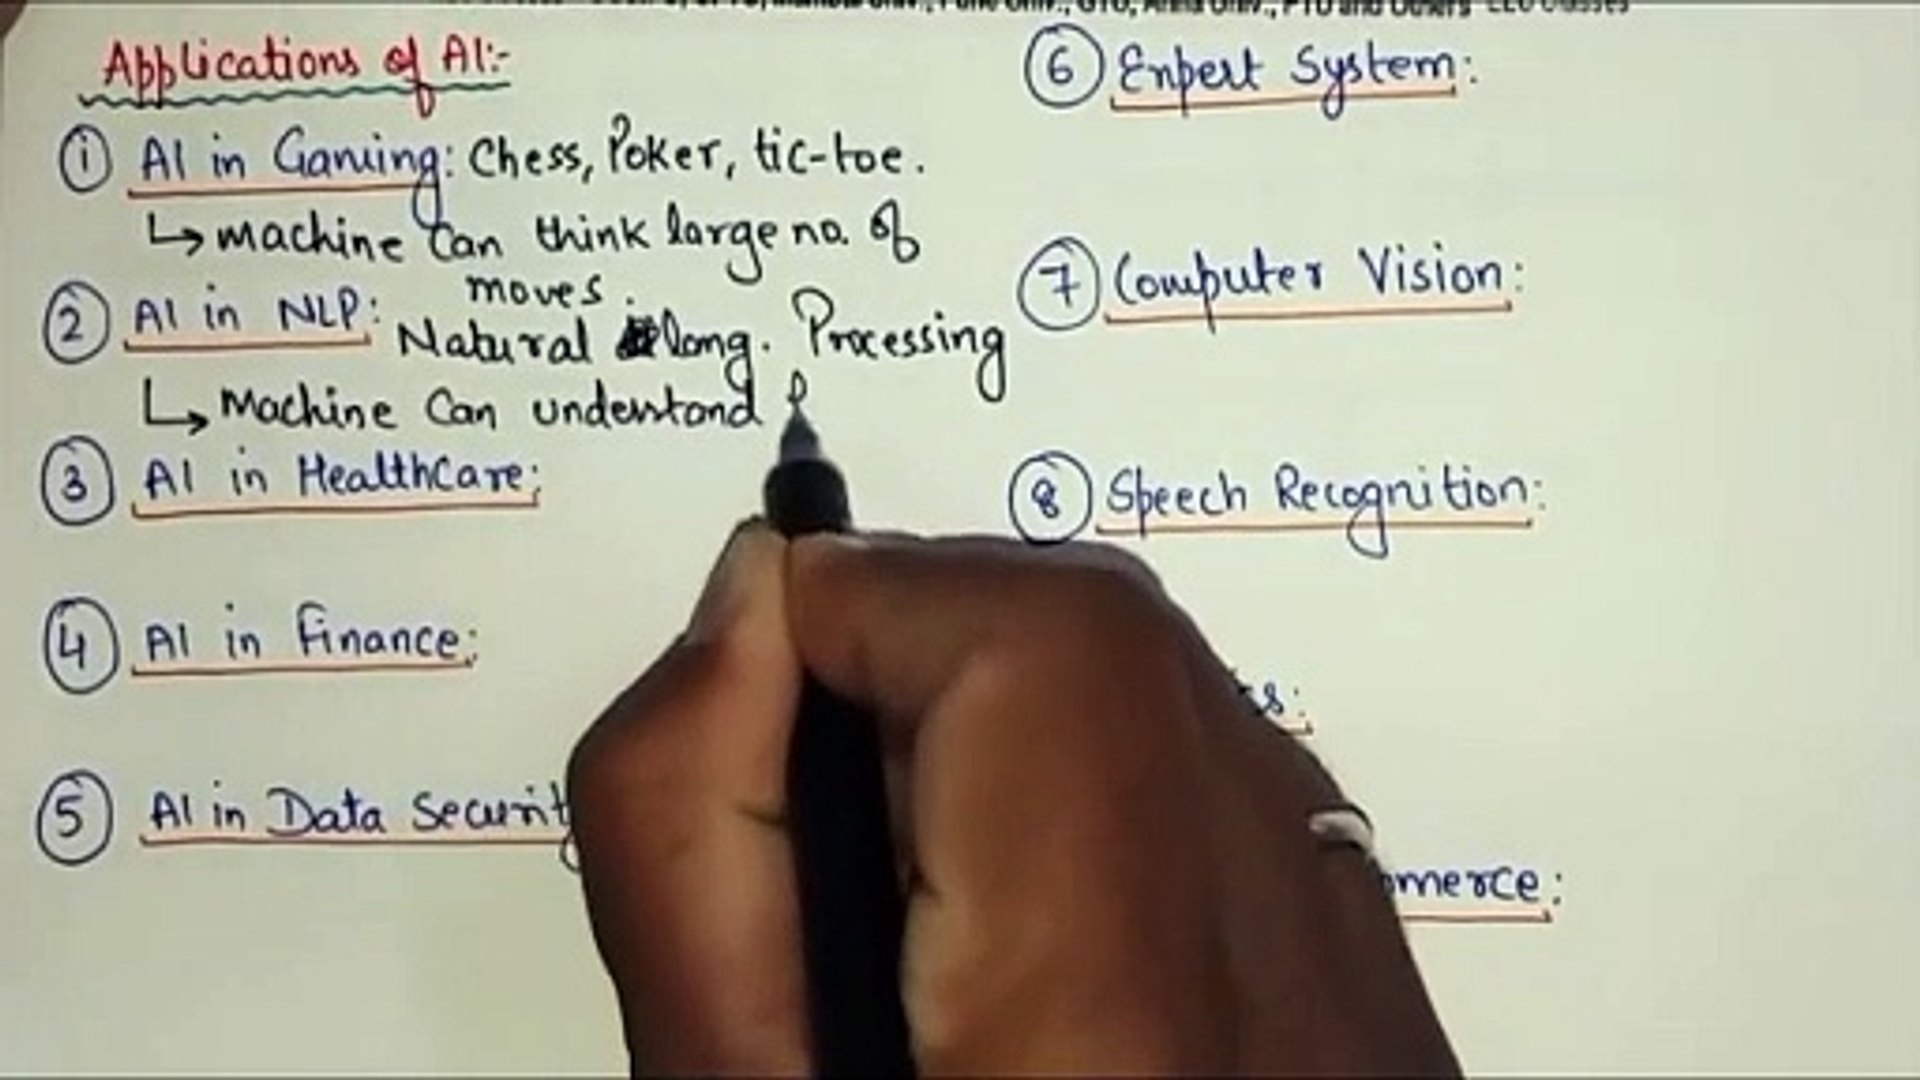 Univ., GTU, Anna Univ., PTU and Others EEC Classes
Applications of AI:-
① AI in Gaming: Chess, Poker, tic-toe.
↳ machine can think large no. of
moves.
② AI in NLP: Natural lang. Processing
↳ Machine Can understand
③ AI in HealthCare:
④ AI in Finance:
⑤ AI in Data Securit
⑥ Expert System:
⑦ Computer Vision:
⑧ Speech Recognition:
cs:
mmerce: